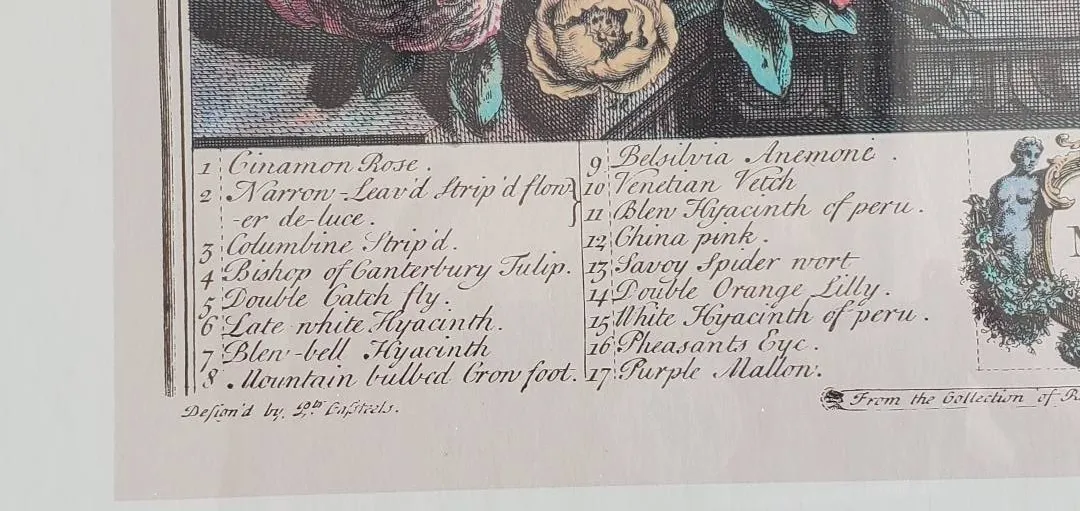 1 Cinamon Rose.
2 Narrow-Leav'd Strip'd flow
-er de-luce.
3 Columbine Strip'd.
4 Bishop of Canterbury Tulip.
5 Double Catch fly.
6 Late white Hyacinth.
7 Blew-bell Hyacinth
8 Mountain bulbed Crow foot.
9 Belsilvia Anemone.
10 Venetian Vetch
11 Blew Hyacinth of peru.
12 China pink.
13 Savoy Spider wort
14 Double Orange Lilly.
15 White Hyacinth of peru.
16 Pheasants Eye.
17 Purple Mallow.
Design'd by Pr. Casteels.
From the Collection of R